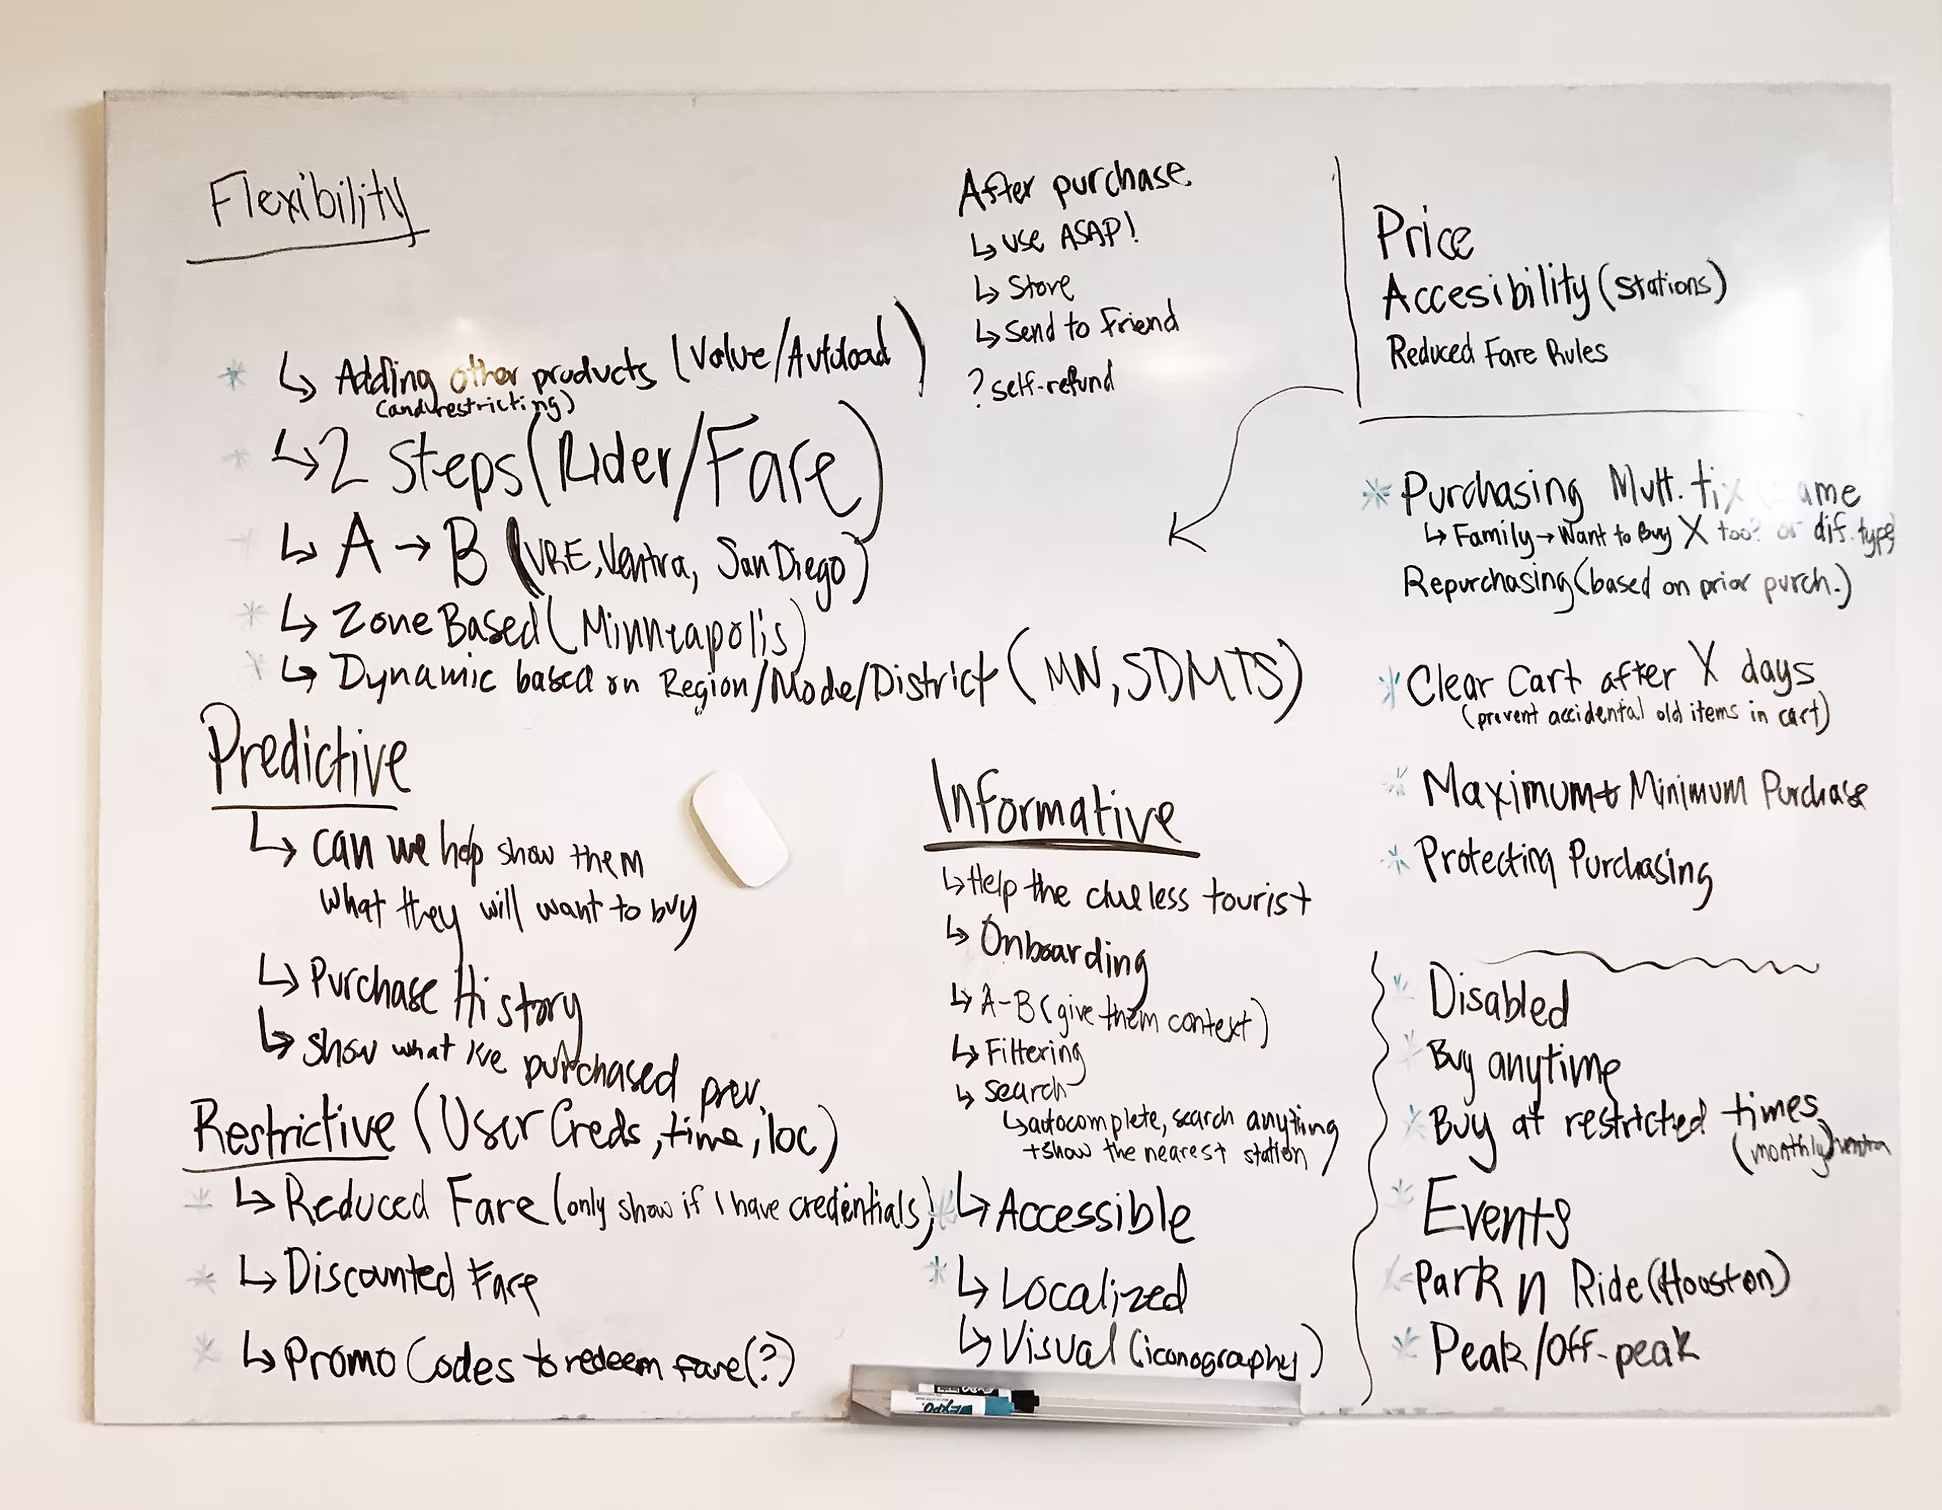 Flexibility
↳ Adding other products (Value/Autoload)
(and restricting)
↳ 2 Steps (Rider/Fare)
↳ A → B (VRE, Ventra, San Diego)
↳ Zone Based (Minneapolis)
↳ Dynamic based on Region/Mode/District (MN, SDMTS)
Predictive
↳ can we help show them
what they will want to buy
↳ Purchase History
↳ show what I've purchased prev.
Restrictive (User Creds, time, loc)
↳ Reduced Fare (only show if I have credentials)
↳ Discounted Fare
↳ Promo Codes to redeem fare(?)
After purchase
↳ use ASAP!
↳ Store
↳ Send to Friend
? self-refund
Informative
↳ Help the clueless tourist
↳ Onboarding
↳ A-B (give them context)
↳ Filtering
↳ search
↳ autocomplete, search anything
+ show the nearest station
↳ Accessible
↳ Localized
↳ Visual (iconography)
Price
Accesibility (stations)
Reduced Fare Rules
* Purchasing Mult. tix
↳ Family → Want to Buy X too? or dif. type
Repurchasing (based on prior purch.)
* Clear Cart after X days
(prevent accidental old items in cart)
* Maximum + Minimum Purchase
* Protecting Purchasing
* Disabled
* Buy anytime
* Buy at restricted times
(monthly)
* Events
* Park n Ride (Houston)
* Peak/Off-peak
EXPO